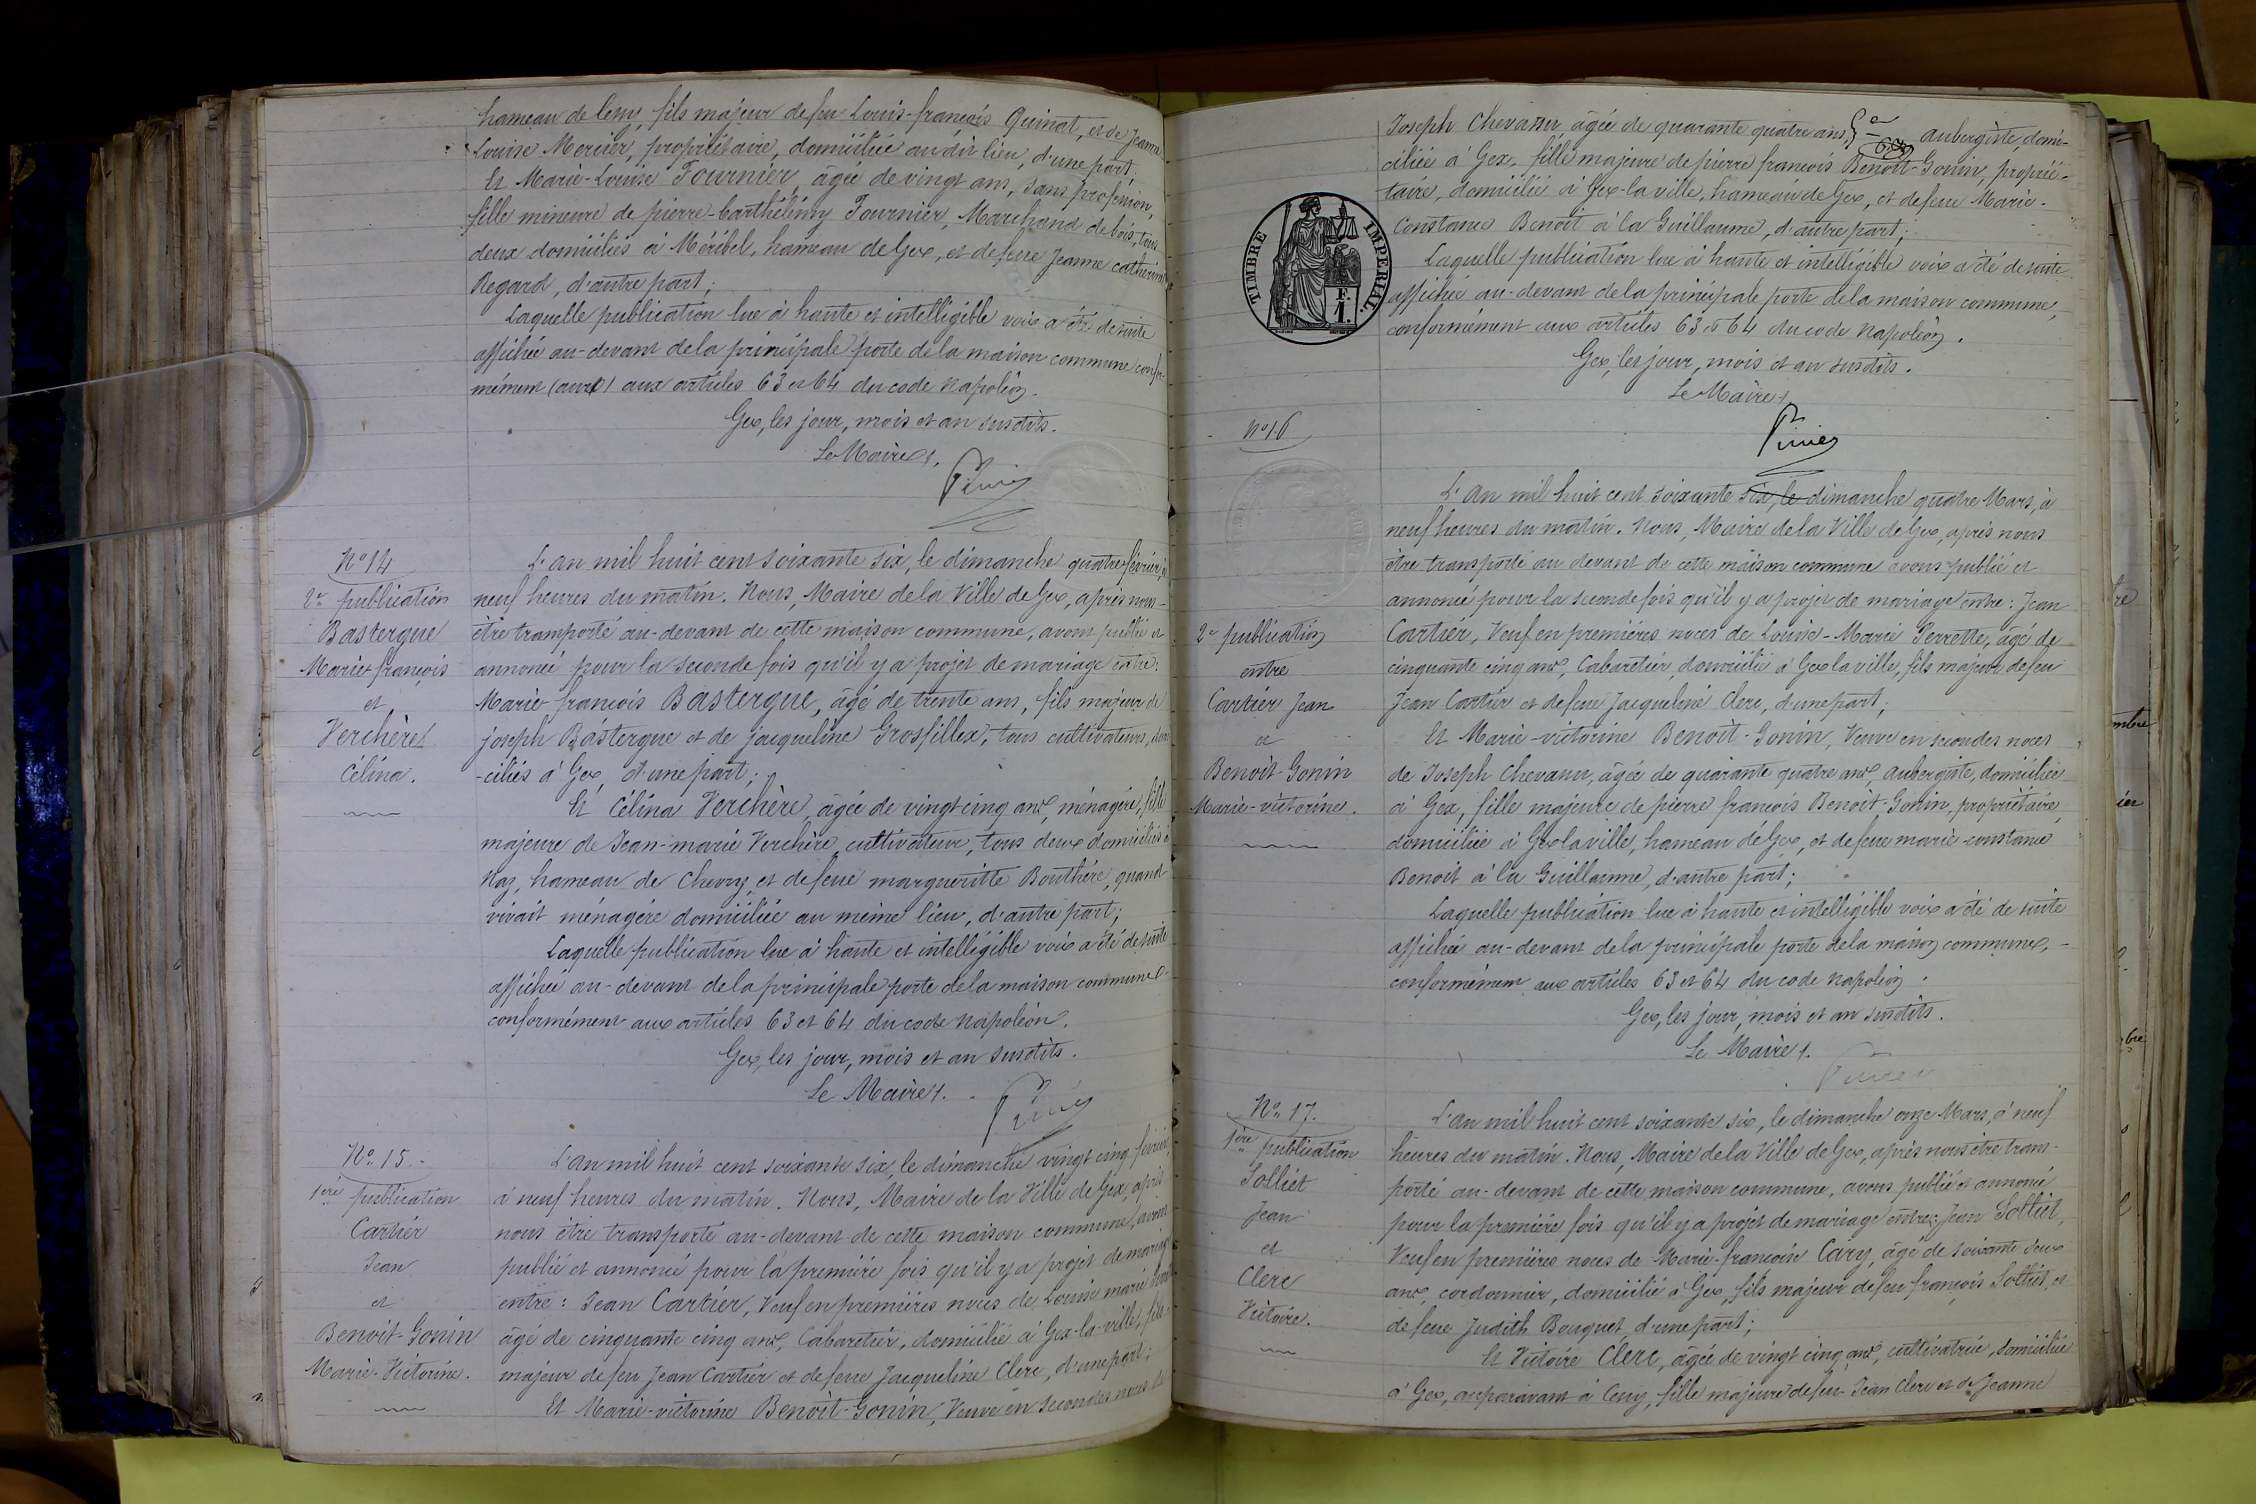 hameau de Cessy, fils majeur de feu Louis-françois Quinat, et de Jeanne
Louise Mercier, propriétaire, domiciliée au dit lieu, d'une part;
Et Marie-Louise Fournier, âgée de vingt ans, sans profession,
fille mineure de pierre-barthélémy Fournier, Marchand de bois, tous
deux domiciliés à Méribel, hameau de Gex, et de feue Jeanne catherine
Regard, d'autre part;
Laquelle publication lue à haute et intelligible voix a été de suite
affichée au-devant de la principale porte de la maison commune confor-
mément (aux) aux articles 63 et 64 du code napoléon.
Gex, les jour, mois et an susdits.
Le Maire,
N° 14
2e publication
Bastergue
Marie françois
et
Verchère
Célina.
L'an mil huit cent soixante six, le dimanche quatre février, à
neuf heures du matin. Nous, Maire de la Ville de Gex, après nous-
être transporté au-devant de cette maison commune, avons publié et
annoncé pour la seconde fois qu'il y a projet de mariage entre:
Marie françois Bastergue, âgé de trente ans, fils majeur de
joseph Bastergue et de jacqueline Grosfillex, tous cultivateurs, domi
-ciliés à Gex, d'une part;
Et Célina Verchère, âgée de vingt cinq ans, ménagère, fille
majeure de Jean-marie Verchère, cultivateur, tous deux domiciliés à
Naz, hameau de Chevry, et de feue margueritte Bouthère, quand
vivait ménagère domiciliée au même lieu, d'autre part;
Laquelle publication lue à haute et intelligible voix a été de suite
affichée au-devant de la principale porte de la maison commune
conformément aux articles 63 et 64 du code Napoléon.
Gex, les jour, mois et an susdits.
Le Maire.
N° 15.
1ère publication
Cartier
Jean
et
Benoit-Gonin
Marie-Victorine.
L'an mil huit cent soixante six, le dimanche vingt cinq février,
à neuf heures du matin. Nous, Maire de la Ville de Gex, après
nous être transporté au-devant de cette maison commune, avons
publié et annoncé pour la première fois qu'il y a projet de mariage
entre: Jean Cartier, Veuf en premières noces de Louise marie
âgé de cinquante cinq ans, Cabaretier, domicilié à Gex-la-ville, fils
majeur de feu Jean Cartier et de feue Jacqueline Clerc, d'une part;
Et Marie-victorine Benoit-Gonin, Veuve en secondes noces de
Joseph Chevassu, âgée de quarante quatre ans, aubergiste, domi-
ciliée à Gex, fille majeure de pierre françois Benoit-Gonin, proprié-
taire, domicilié à Gex-la-ville, hameau de Gex, et de feue Marie-
Constance Benoit à la Guillaume, d'autre part;
Laquelle publication lue à haute et intelligible voix a été de suite
affichée au-devant de la principale porte de la maison commune,
conformément aux articles 63 et 64 du code Napoléon.
Gex, les jour, mois et an susdits.
Le Maire,
TIMBRE IMPERIAL.
F.
1.
N° 16
2e publication
entre
Cartier Jean
et
Benoit-Gonin
Marie-victorine.
L'an mil huit cent soixante six, le dimanche quatre Mars, à
neuf heures du matin. Nous, Maire de la Ville de Gex, après nous
être transporté au devant de cette maison commune avons publié et
annoncé pour la seconde fois qu'il y a projet de mariage entre: Jean
Cartier, Veuf en premières noces de Louise-Marie Perrette, âgé de
cinquante cinq ans, Cabaretier, domicilié à Gex la ville, fils majeur de feu
Jean Cartier et de feue Jacqueline Clerc, d'une part;
Et Marie-victorine Benoit-Gonin, Veuve en secondes noces
de Joseph Chevassu, âgée de quarante quatre ans, Aubergiste, domiciliée
à Gex, fille majeure de pierre françois Benoit-Gonin, propriétaire,
domicilié à Gex la ville, hameau de Gex, et de feue marie constance
Benoit à la Guillaume, d'autre part;
Laquelle publication lue à haute et intelligible voix a été de suite
affichée au-devant de la principale porte de la maison commune,
conformément aux articles 63 et 64 du code Napoléon.
Gex, les jour, mois et an susdits.
Le Maire.
N° 17.
1ère publication
Solliet
Jean
et
Clerc
Victoire.
L'an mil huit cent soixante six, le dimanche onze Mars, à neuf
heures du matin. Nous, Maire de la Ville de Gex, après nous être trans-
porté au-devant de cette maison commune, avons publié et annoncé
pour la première fois qu'il y a projet de mariage entre: Jean Solliet,
Veuf en premières noces de Marie-françoise Cary, âgé de soixante deux
ans, cordonnier, domicilié à Gex, fils majeur de feu françois Solliet, et
de feue Judith Bouquet, d'une part;
Et Victoire Clerc, âgée de vingt cinq ans, cultivatrice, domiciliée
à Gex, auparavant à Cessy, fille majeure de feu Jean Clerc et de Jeanne